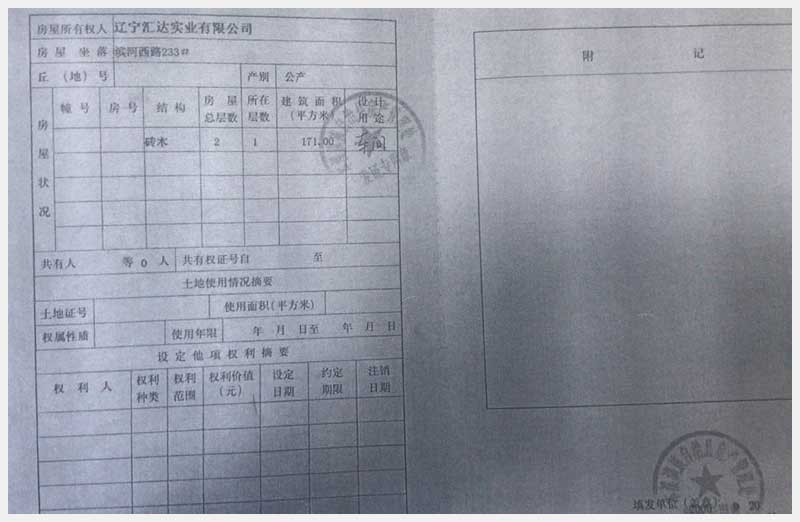 房屋所有权人 辽宁汇达实业有限公司
房屋坐落 滨河西路233#
丘(地)号 产别 公产
房屋状况
幢号 房号 结构 房屋总层数 所在层数 建筑面积(平方米) 设计用途
砖木 2 1 171.00 车间
共有人 等0人 共有权证号自 至
土地使用情况摘要
土地证号 使用面积(平方米)
权属性质 使用年限 年 月 日至 年 月 日
设定他项权利摘要
权利人 权利种类 权利范围 权利价值(元) 设定日期 约定期限 注销日期
附记
填发单位(盖章)
9 20